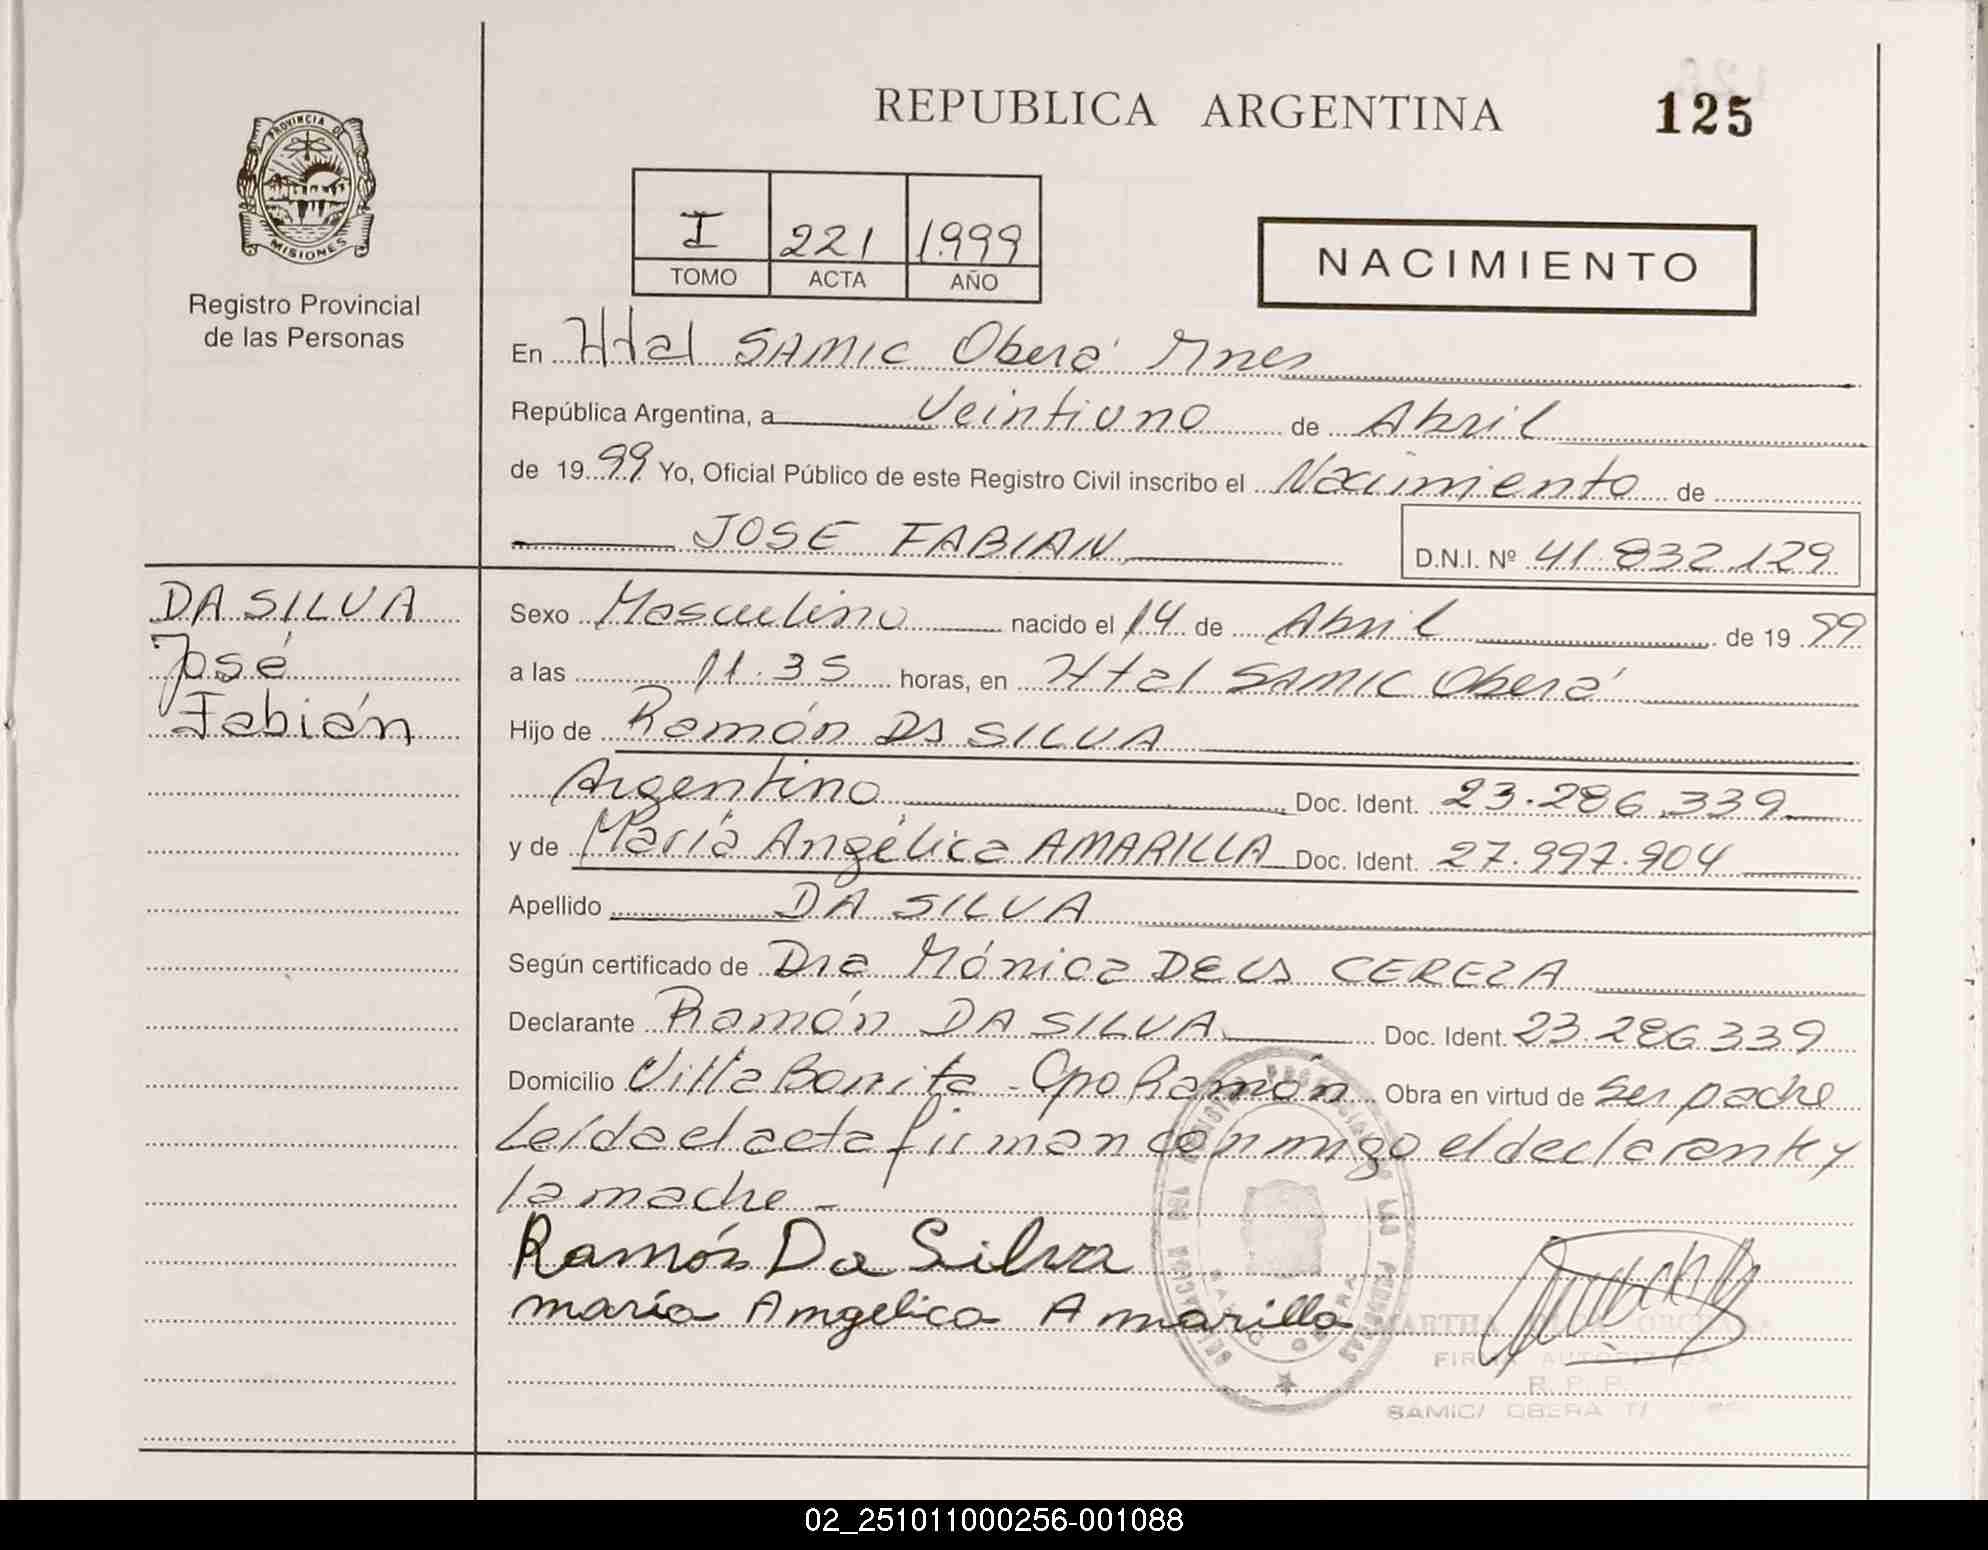 REPUBLICA ARGENTINA
125
PROVINCIA DE
MISIONES
Registro Provincial
de las Personas
I 221 1.999
TOMO ACTA AÑO
NACIMIENTO
En Htal SAMIC Oberá Mnes
República Argentina, a Veintiuno de Abril
de 19 99 Yo, Oficial Público de este Registro Civil inscribo el Nacimiento de
JOSE FABIAN D.N.I. Nº 41.832.129
DA SILVA
José
Fabián
Sexo Masculino nacido el 14 de Abril de 19 99
a las 11.35 horas, en Htal SAMIC Oberá
Hijo de Ramón DA SILVA
Argentino Doc. Ident. 23.286.339
y de María Angélica AMARILLA Doc. Ident. 27.997.904
Apellido DA SILVA
Según certificado de Dra Mónica DE LA CEREZA
Declarante Ramón DA SILVA Doc. Ident. 23.286.339
Domicilio Villa Bonita - Cpo Ramón Obra en virtud de ser padre
Leída el acta firman conmigo el declarante y
la madre -
Ramón Da Silva
maría Amgelica Amarilla
MARTHA
FIRMA AUTORIZADA
R. P. P.
SAMIC/ OBERA
02_251011000256-001088